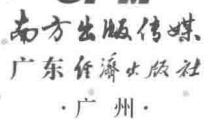 南方出版传媒
广东经济出版社
·广州·